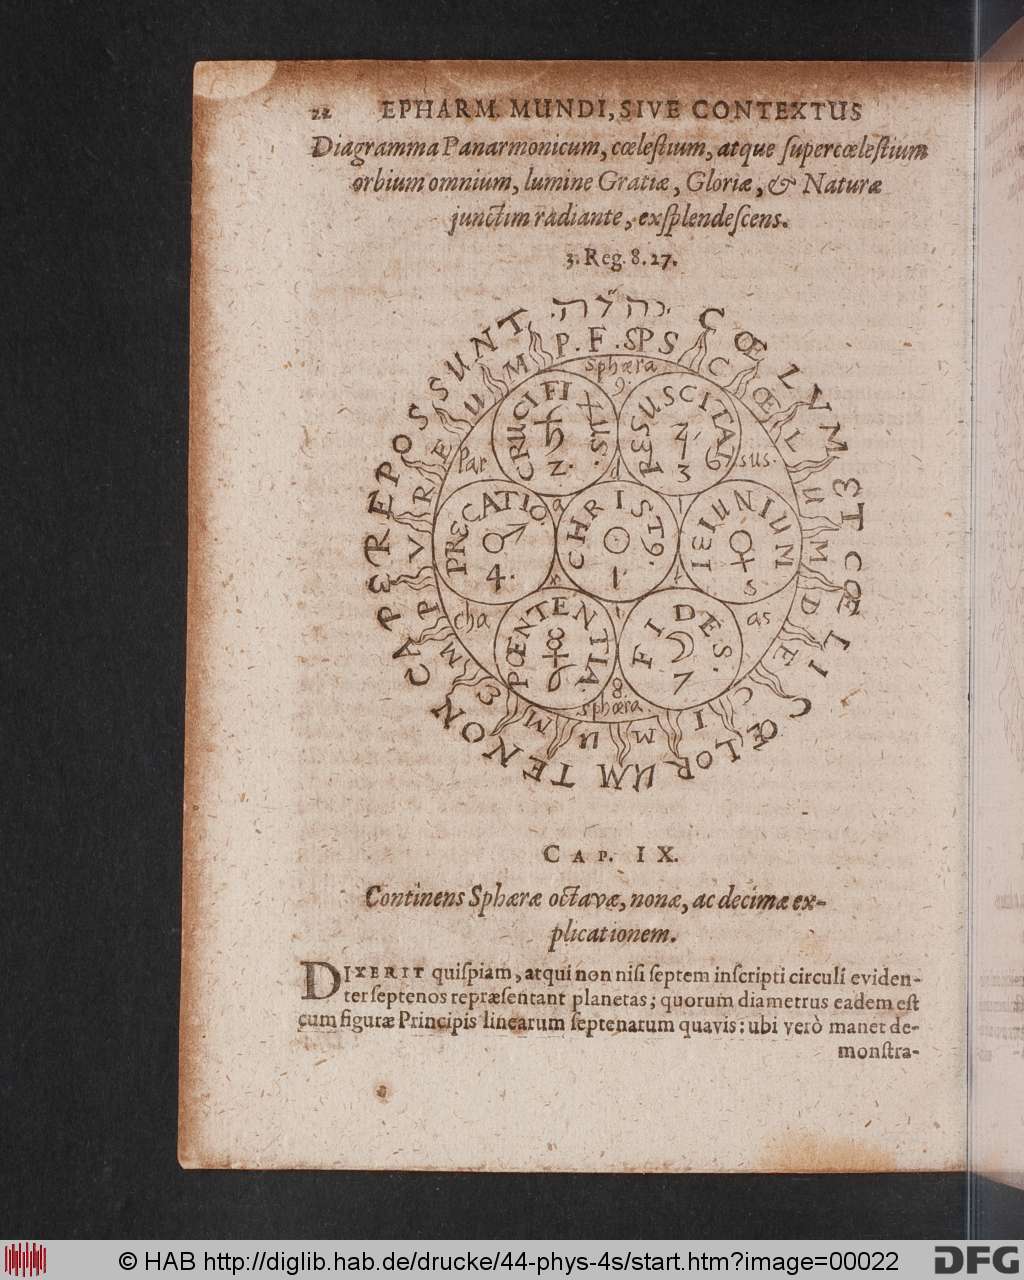 22 EPHARM. MUNDI, SIVE CONTEXTUS
Diagramma Panarmonicum, cœleſtium, atque ſupercœleſtium
orbium omnium, lumine Gratiæ, Gloriæ, & Naturæ
junctim radiante, exſplendeſcens.
3. Reg. 8. 27.
יהוה
CŒLVM ET CŒLI CŒLORUM TE NON CAPERE POSSUNT
P. F. SPS
CŒLUM DEICIUM
EMPVREUM
Sphæra
9.
CRUCIFIXUS.
♄
2.
RESUSCITAT
♃
3
Par
a
d
sus.
PRECATIO.
♂
4.
CHRIST9.
☉
1.
IEIUNIUM
♀
5
cha
as
PŒNTENTIA.
☿
6
FIDES.
☽
7
8
Sphœra
CAP. IX.
Continens Sphæræ octavæ, nonæ, ac decimæ ex-
plicationem.
DIXERIT quiſpiam, atqui non niſi ſeptem inſcripti circuli eviden-
ter ſeptenos repræſentant planetas; quorum diametrus eadem eſt
cum figuræ Principis linearum ſeptenarum quavis: ubi verò manet de-
monſtra-
© HAB http://diglib.hab.de/drucke/44-phys-4s/start.htm?image=00022
DFG